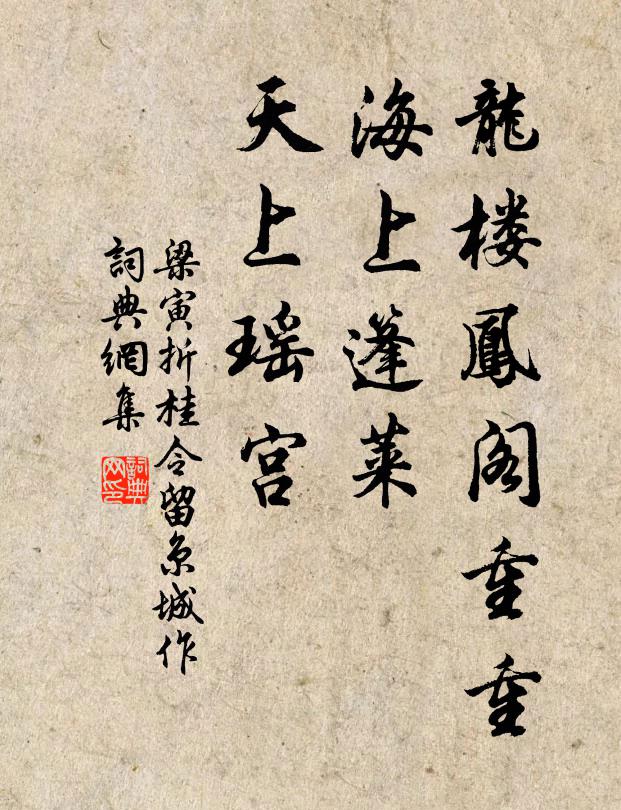 龍楼鳳阁重重
海上蓬莱
天上瑶宫
梁寅折桂令留京城作
詞典網集
詞典网印